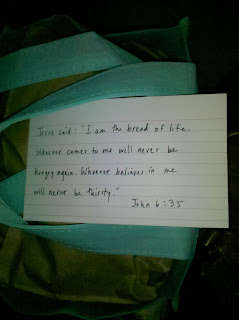 Jesus said: "I am the bread of life.
Whoever comes to me will never be
hungry again. Whoever believes in me
will never be thirsty."
John 6:35